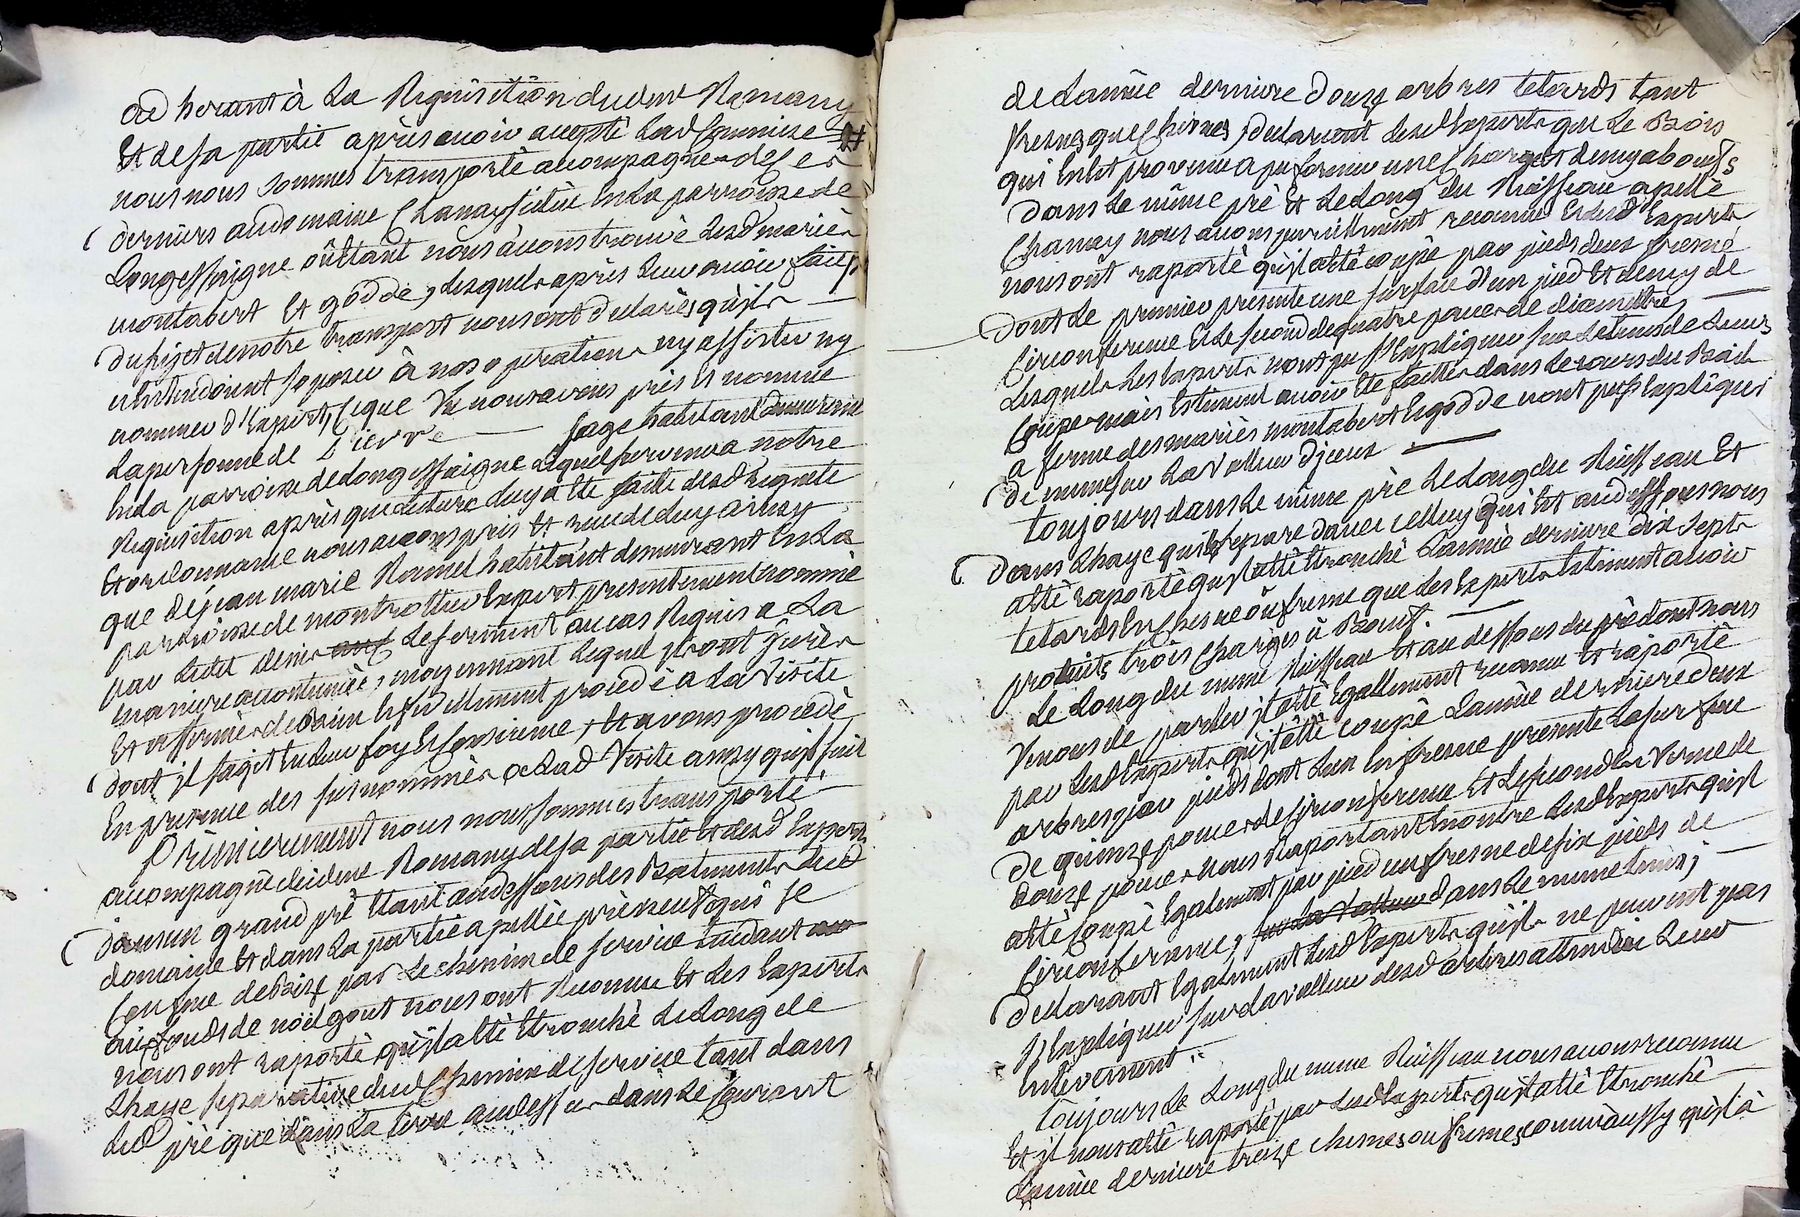 adherant à La Requisition dudme Romany
Et de sa partie après avoir accepté Lad Commise Et
nous nous sommes transporté acompagné de Ces
derniers au domaine Chanay situé En La parroisse de
Longessaigne où Etant nous avons trouvé Lesd mariés
montabert Et godde, Lesquels après Leur avoir fait
du sujet de notre transport nous ont declarés qu'ils
n'entendoient s'oposer à nos operations ny assister ny
nommer d'Expert, Ce que Vu nous avons pris Et nommé
La personne de Pierre Sage habitant demeurant
En La parroisse de Longessaigne Lequel sera mis a notre
Requisition après que Lecture Luy a Eté faitte desd Requete
Et ordonnance nous avons pris Et receu de Luy ainsy
que de jean marie Ramel habitant demeurant En La
parroisse de montrottier Expert presentement nommé
par Ledit Denis Le serment au cas Requis a La
maniere acoutumée, moyennant Lequel ils ont jurés
Et affirmés de bien Et fidellement proceder a La Visite
dont il s'agit En Leur foy Et Conscience, Et avons procedé
En presence des susnommés a Lad Visite ainsy qu'il suit
Premierement nous nous sommes transporté
acompagné dudme Romany de sa partie Et desd Experts
dans un grand pré Etant au dessous des Batiments dud
domaine Et dans La partie apellée pré neuf qui se
Confine de bize par Le chemin de service tendant
aux fonds de noël gout nous ont Reconnu Et Les Experts
nous ont raporté qu'il a Eté Etronché Le Long de
L'haye separative dud Chemin de service tant dans
Led pré que dans La terre au dessus dans Le Courant
de L'année derniere douze arbres tetards tant
fresnes que Chesnes, declarant Lesd Experts que Le Bois
qui En Est provenu a pu former une Charge Et demy a boeufs
dans Le même pré Et Le Long du Ruisseau apellé
Chanay nous avons pareillement reconnu Et Lesd Experts
nous ont raporté qu'il a Eté coupé par pieds deux fresne
dont Le premier presente une surface d'un pied Et demy de
Circonference Et Le second de quatre pouces de diamettre
Lesquels Les Experts n'ont pu s'Expliquer sur Le tems de Leurs
Coupe mais Estiment avoir Eté faittes dans Le cours du Bail
a ferme des mariés montabert Et godde n'ont pu s'Expliquer
de même sur La Valleur d'jceux
toujours dans Le même pré Le Long du Ruisseau Et
dans L'haye qui Le separe d'avec celluy qui Est au dessus nous
a Eté raporté qu'il a Eté Etronché L'année derniere dix sept
tetards En Chesne ou fresne que Les Experts Estiment avoir
produits trois Charges à Boeuf.
Le Long du meme Ruisseau Et au dessous du pré dont nous
Venons de parler il a Eté Egallement reconnu Et raporté
par Lesd Experts qu'il a Eté coupé L'année derniere deux
arbres par pieds dont L'un En fresne presente La surface
de quinze pouces de Circonference Et Le second En Verne de
douze pouces nous Raportant En outre Lesd Experts qu'il
a Eté Coupé Egalement par pied un fresne de six pieds de
Circonference, dans Le meme tems;
declarant Egalement Lesd Experts qu'ils ne peuvent pas
s'Expliquer sur La Valleur desd arbres attendu Leur
Enlevement.
toujours Le Long du meme Ruisseau nous avons reconnu
Et il nous a Eté raporté par Lesd Experts qu'il a Eté Etronché
L'année derniere treize chesnes ou fresnes comm'aussy qu'il a